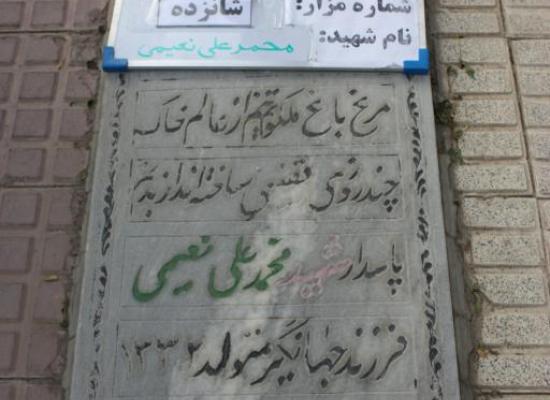 شماره مزار: شانزده
نام شهید: محمد علی نعیمی
مرغ باغ ملکوتم نیم از عالم خاک
چند روزی قفسی ساخته اند از بدنم
پاسدار شهید محمد علی نعیمی
فرزند جهانگیر متولد ۱۳۳۲